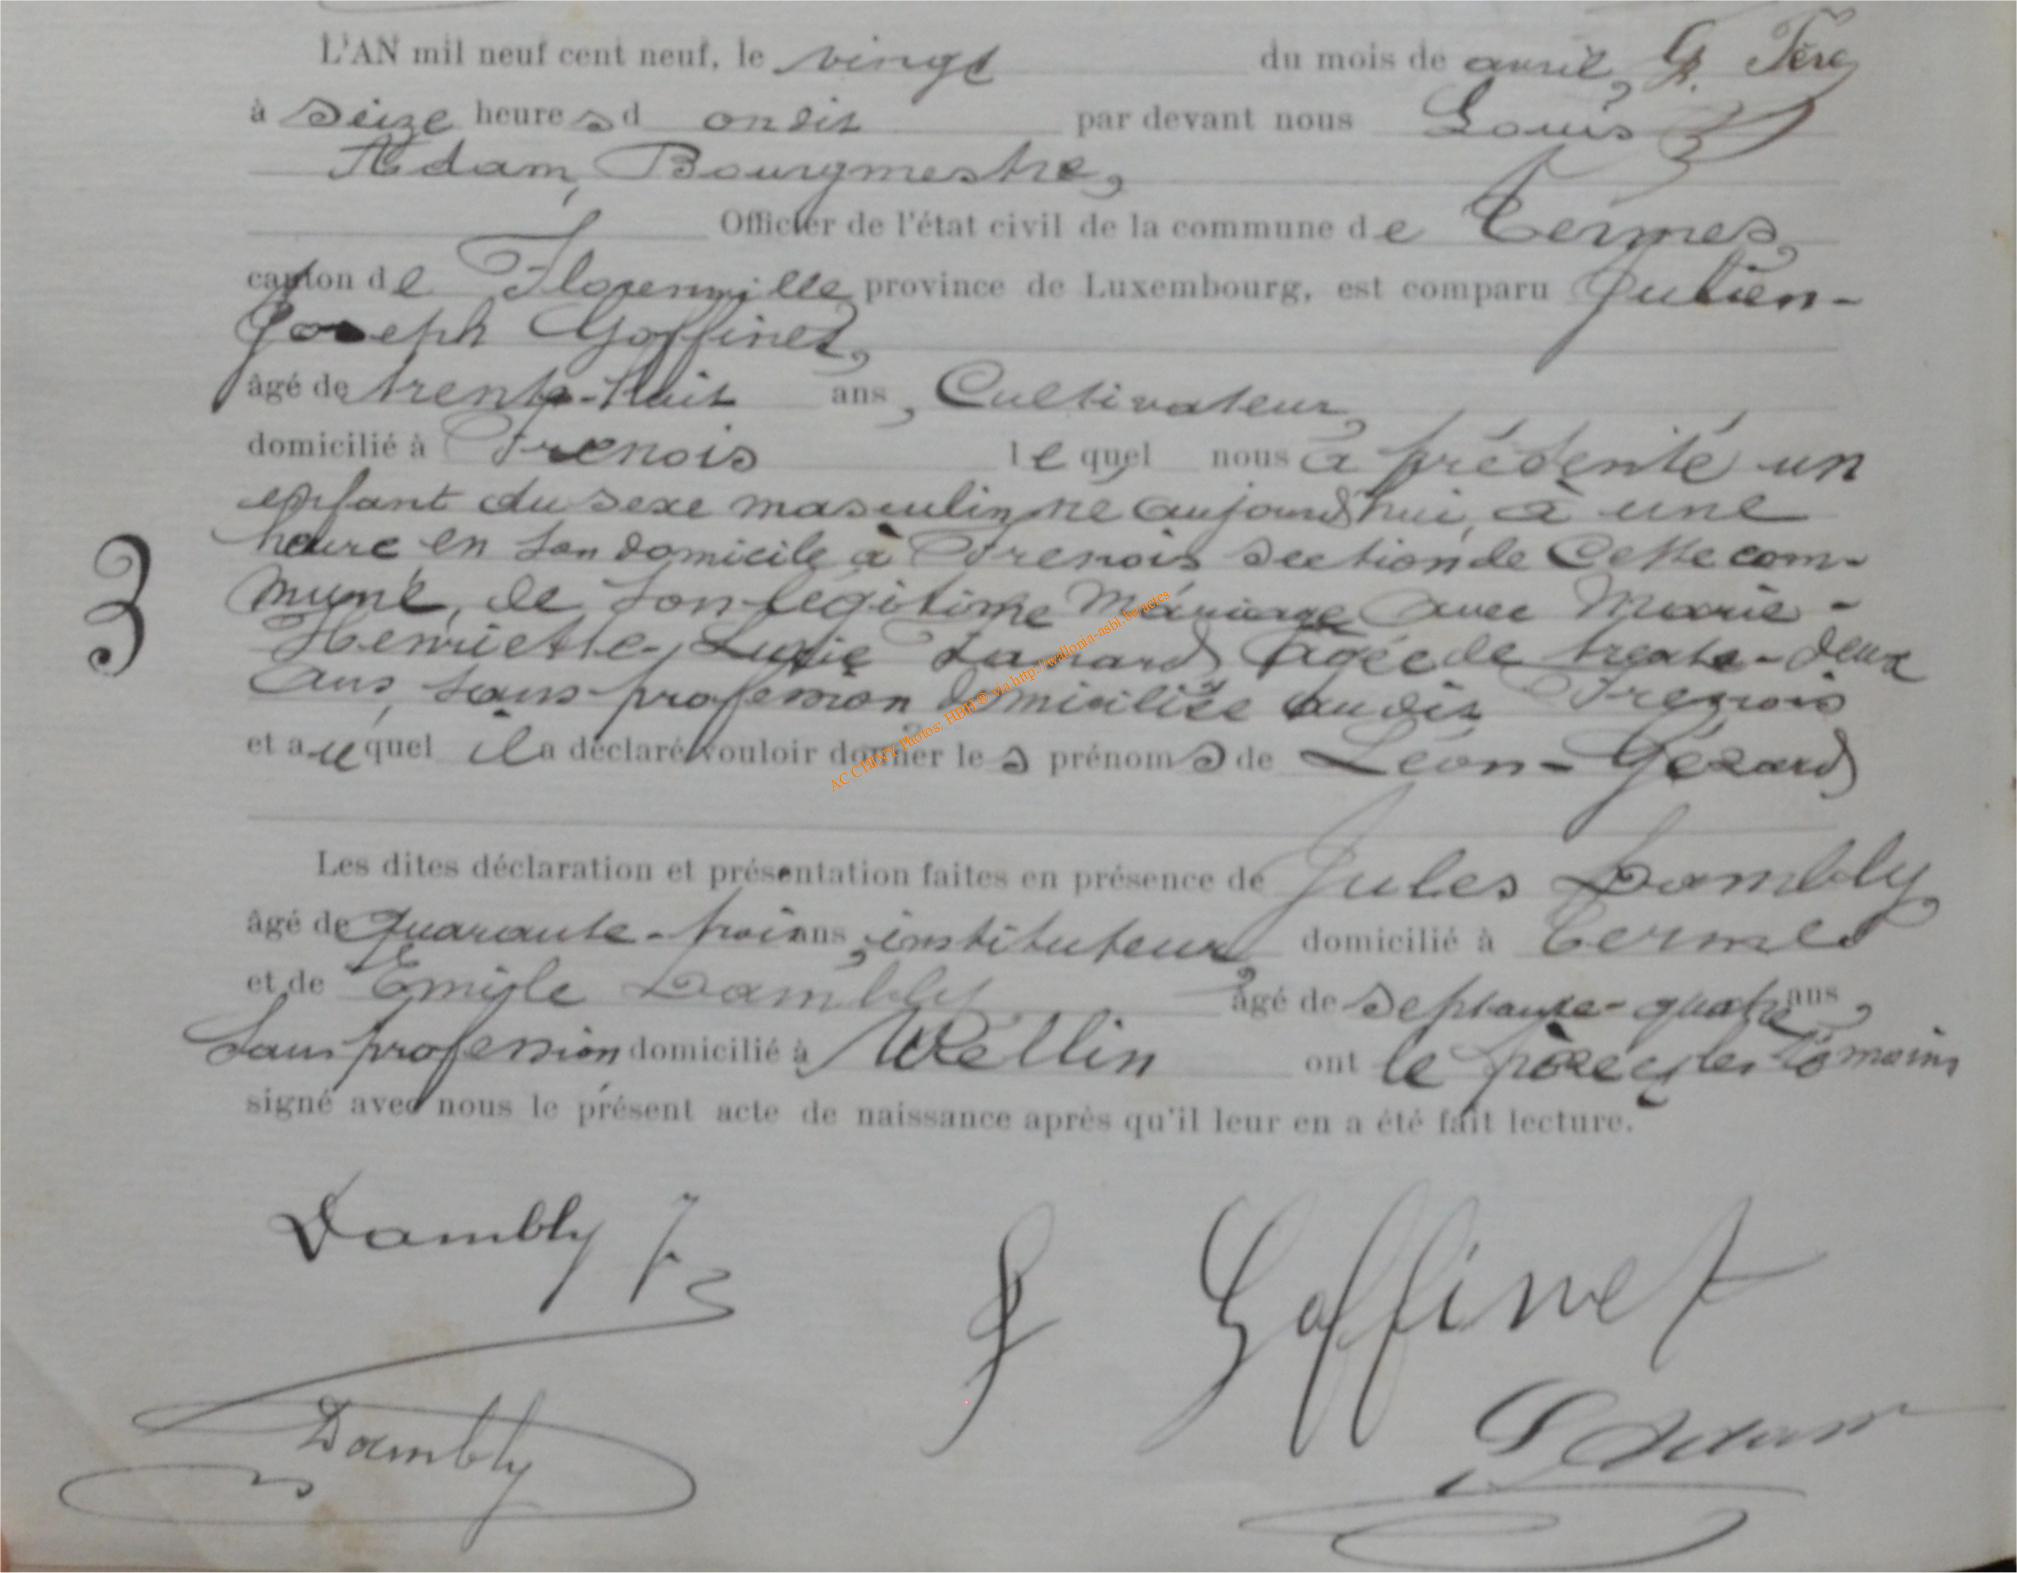 L'AN mil neuf cent neuf, le vingt du mois de avril,
à seize heures d ondit par devant nous Louis
Adam, Bourgmestre,
Officier de l'état civil de la commune de Termes,
canton de Florenville province de Luxembourg, est comparu Julien-
Joseph Goffinet,
âgé de trente-huit ans, Cultivateur,
domicilié à Frenois lequel nous a présenté un
enfant du sexe masculin, né aujourd'hui, à une
heure en son domicile à Frenois section de Cette com-
mune, de son légitime Mariage avec Marie-
Henriette-Lucie âgée de trente-deux
ans, sans profession domiciliée audit Frenois
et auquel il a déclaré vouloir donner les prénoms de Léon-Gérard
Les dites déclaration et présentation faites en présence de Jules Dambly
âgé de quarante-trois ans, instituteur, domicilié à Termes
et de Emile Dambly, âgé de septante-quatre ans,
sans profession domicilié à Wellin ont le père et les témoins
signé avec nous le présent acte de naissance après qu'il leur en a été fait lecture.
3
AC CHINY Photos: HBH © via http://wallonia-asbl.be/actes
Dambly J
J Goffinet
Dambly
L Adam